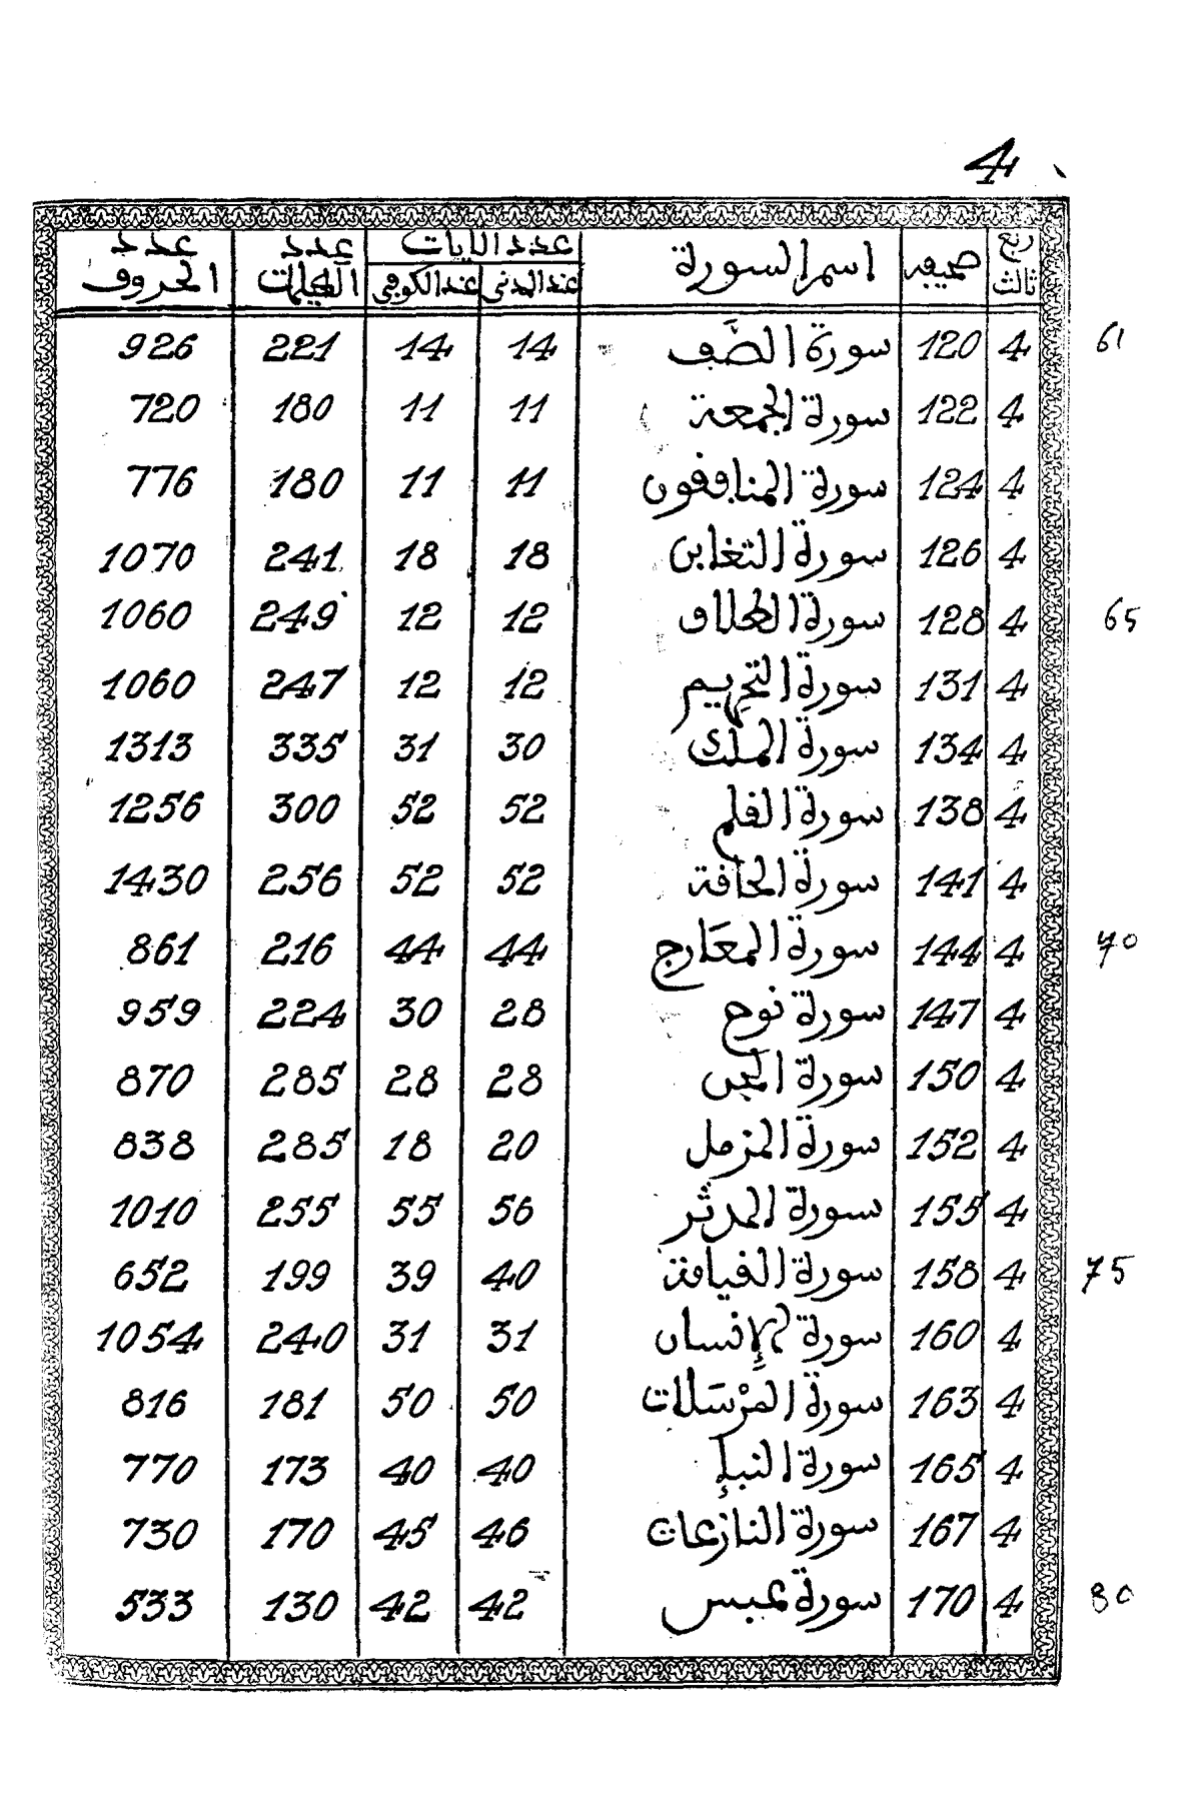 4
ربع ثالث صحيفة اسم السورة عدد الآيات عدد الكلمات عدد الحروف
عند المدني عند الكوفي
4 120 سورة الصَّف 14 14 221 926 61
4 122 سورة الجمعة 11 11 180 720
4 124 سورة المنافقون 11 11 180 776
4 126 سورة التغابن 18 18 241 1070
4 128 سورة الطلاق 12 12 249 1060 65
4 131 سورة التحريم 12 12 247 1060
4 134 سورة الملك 30 31 335 1313
4 138 سورة القلم 52 52 300 1256
4 141 سورة الحاقة 52 52 256 1430
4 144 سورة المعَارج 44 44 216 861 70
4 147 سورة نوح 28 30 224 959
4 150 سورة الجن 28 28 285 870
4 152 سورة المزمل 20 18 285 838
4 155 سورة المدثر 56 55 255 1010
4 158 سورة القيامة 40 39 199 652 75
4 160 سورة الإنسان 31 31 240 1054
4 163 سورة المرْسَلات 50 50 181 816
4 165 سورة النبإ 40 40 173 770
4 167 سورة النازعات 46 45 170 730
4 170 سورة عبس 42 42 130 533 80